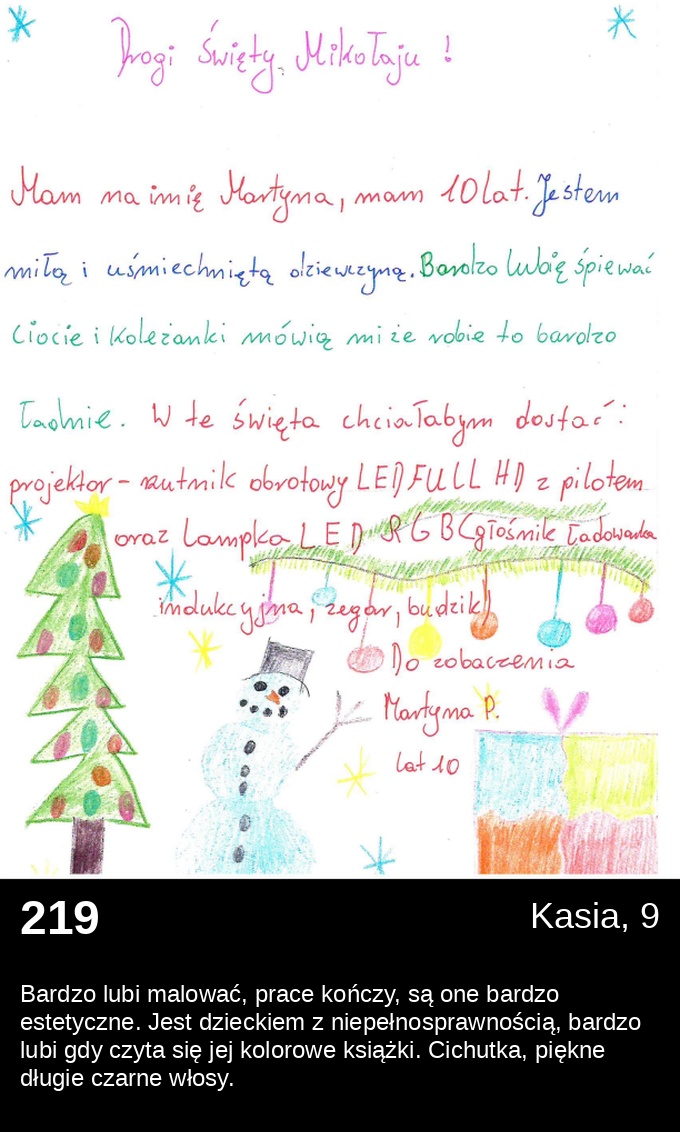 Drogi Święty Mikołaju !
Mam na imię Martyna, mam 10 lat. Jestem
miłą i uśmiechniętą dziewczyną. Bardzo lubię śpiewać
Ciocie i koleżanki mówią mi że robie to bardzo
ładnie. W te święta chciałabym dostać:
projektor - rzutnik obrotowy LED FULL HD z pilotem
oraz Lampka LED RGB (głośnik ładowarka
indukcyjna, zegar, budzik)
Do zobaczenia
Martyna P.
lat 10
219
Kasia, 9
Bardzo lubi malować, prace kończy, są one bardzo
estetyczne. Jest dzieckiem z niepełnosprawnością, bardzo
lubi gdy czyta się jej kolorowe książki. Cichutka, piękne
długie czarne włosy.